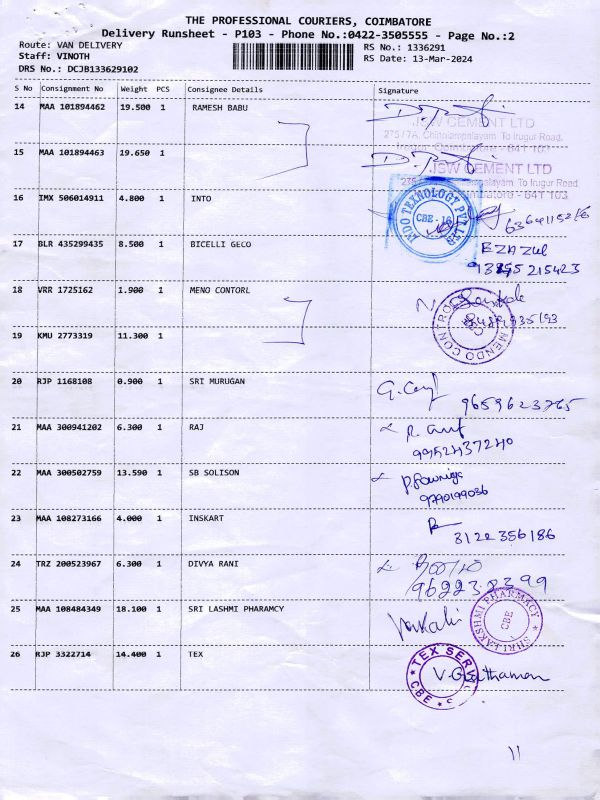 THE PROFESSIONAL COURIERS, COIMBATORE
Delivery Runsheet - P103 - Phone No.:0422-3505555 - Page No.:2
Route: VAN DELIVERY
RS No.: 1336291
Staff: VINOTH
RS Date: 13-Mar-2024
DRS No.: DCJB133629102
S No Consignment No Weight PCS Consignee Details Signature
14 MAA 101894462 19.500 1 RAMESH BABU
JSW CEMENT LTD
275/7A, Chinniampalayam To Irugur Road,
15 MAA 101894463 19.650 1
JSW CEMENT LTD
16 IMX 506014911 4.800 1 INTO
INDO TEXNOLOGY PVT LTD
CBE - 16
17 BLR 435299435 8.500 1 BICELLI GECO
18 VRR 1725162 1.900 1 MENO CONTORL
MENDO CONTROL
19 KMU 2773319 11.300 1
20 RJP 1168108 0.900 1 SRI MURUGAN
9659623765
21 MAA 300941202 6.300 1 RAJ
9952437240
22 MAA 300502759 13.590 1 SB SOLISON
9790199036
23 MAA 108273166 4.000 1 INSKART
3122356186
24 TRZ 200523967 6.300 1 DIVYA RANI
25 MAA 108484349 18.100 1 SRI LASHMI PHARAMCY
SHRI LAKSHMI PHARMACY
CBE
26 RJP 3322714 14.400 1 TEX
TEX SERVI
CBE
11